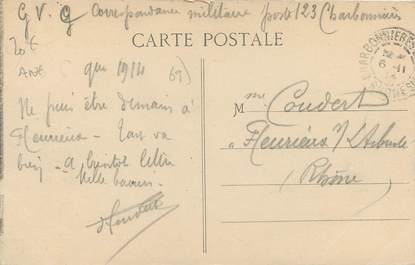 G V G Correspondance militaire poste 123 Charbonnières
CARTE POSTALE
1914
Ne puis être demain à
Fleurieux - Tout va
bien - à bientôt lettre
Mille baisers
Mme Coudert
à Fleurieux s/ l'Arbresle
Rhône
CHARBONNIÈRES
6 -11